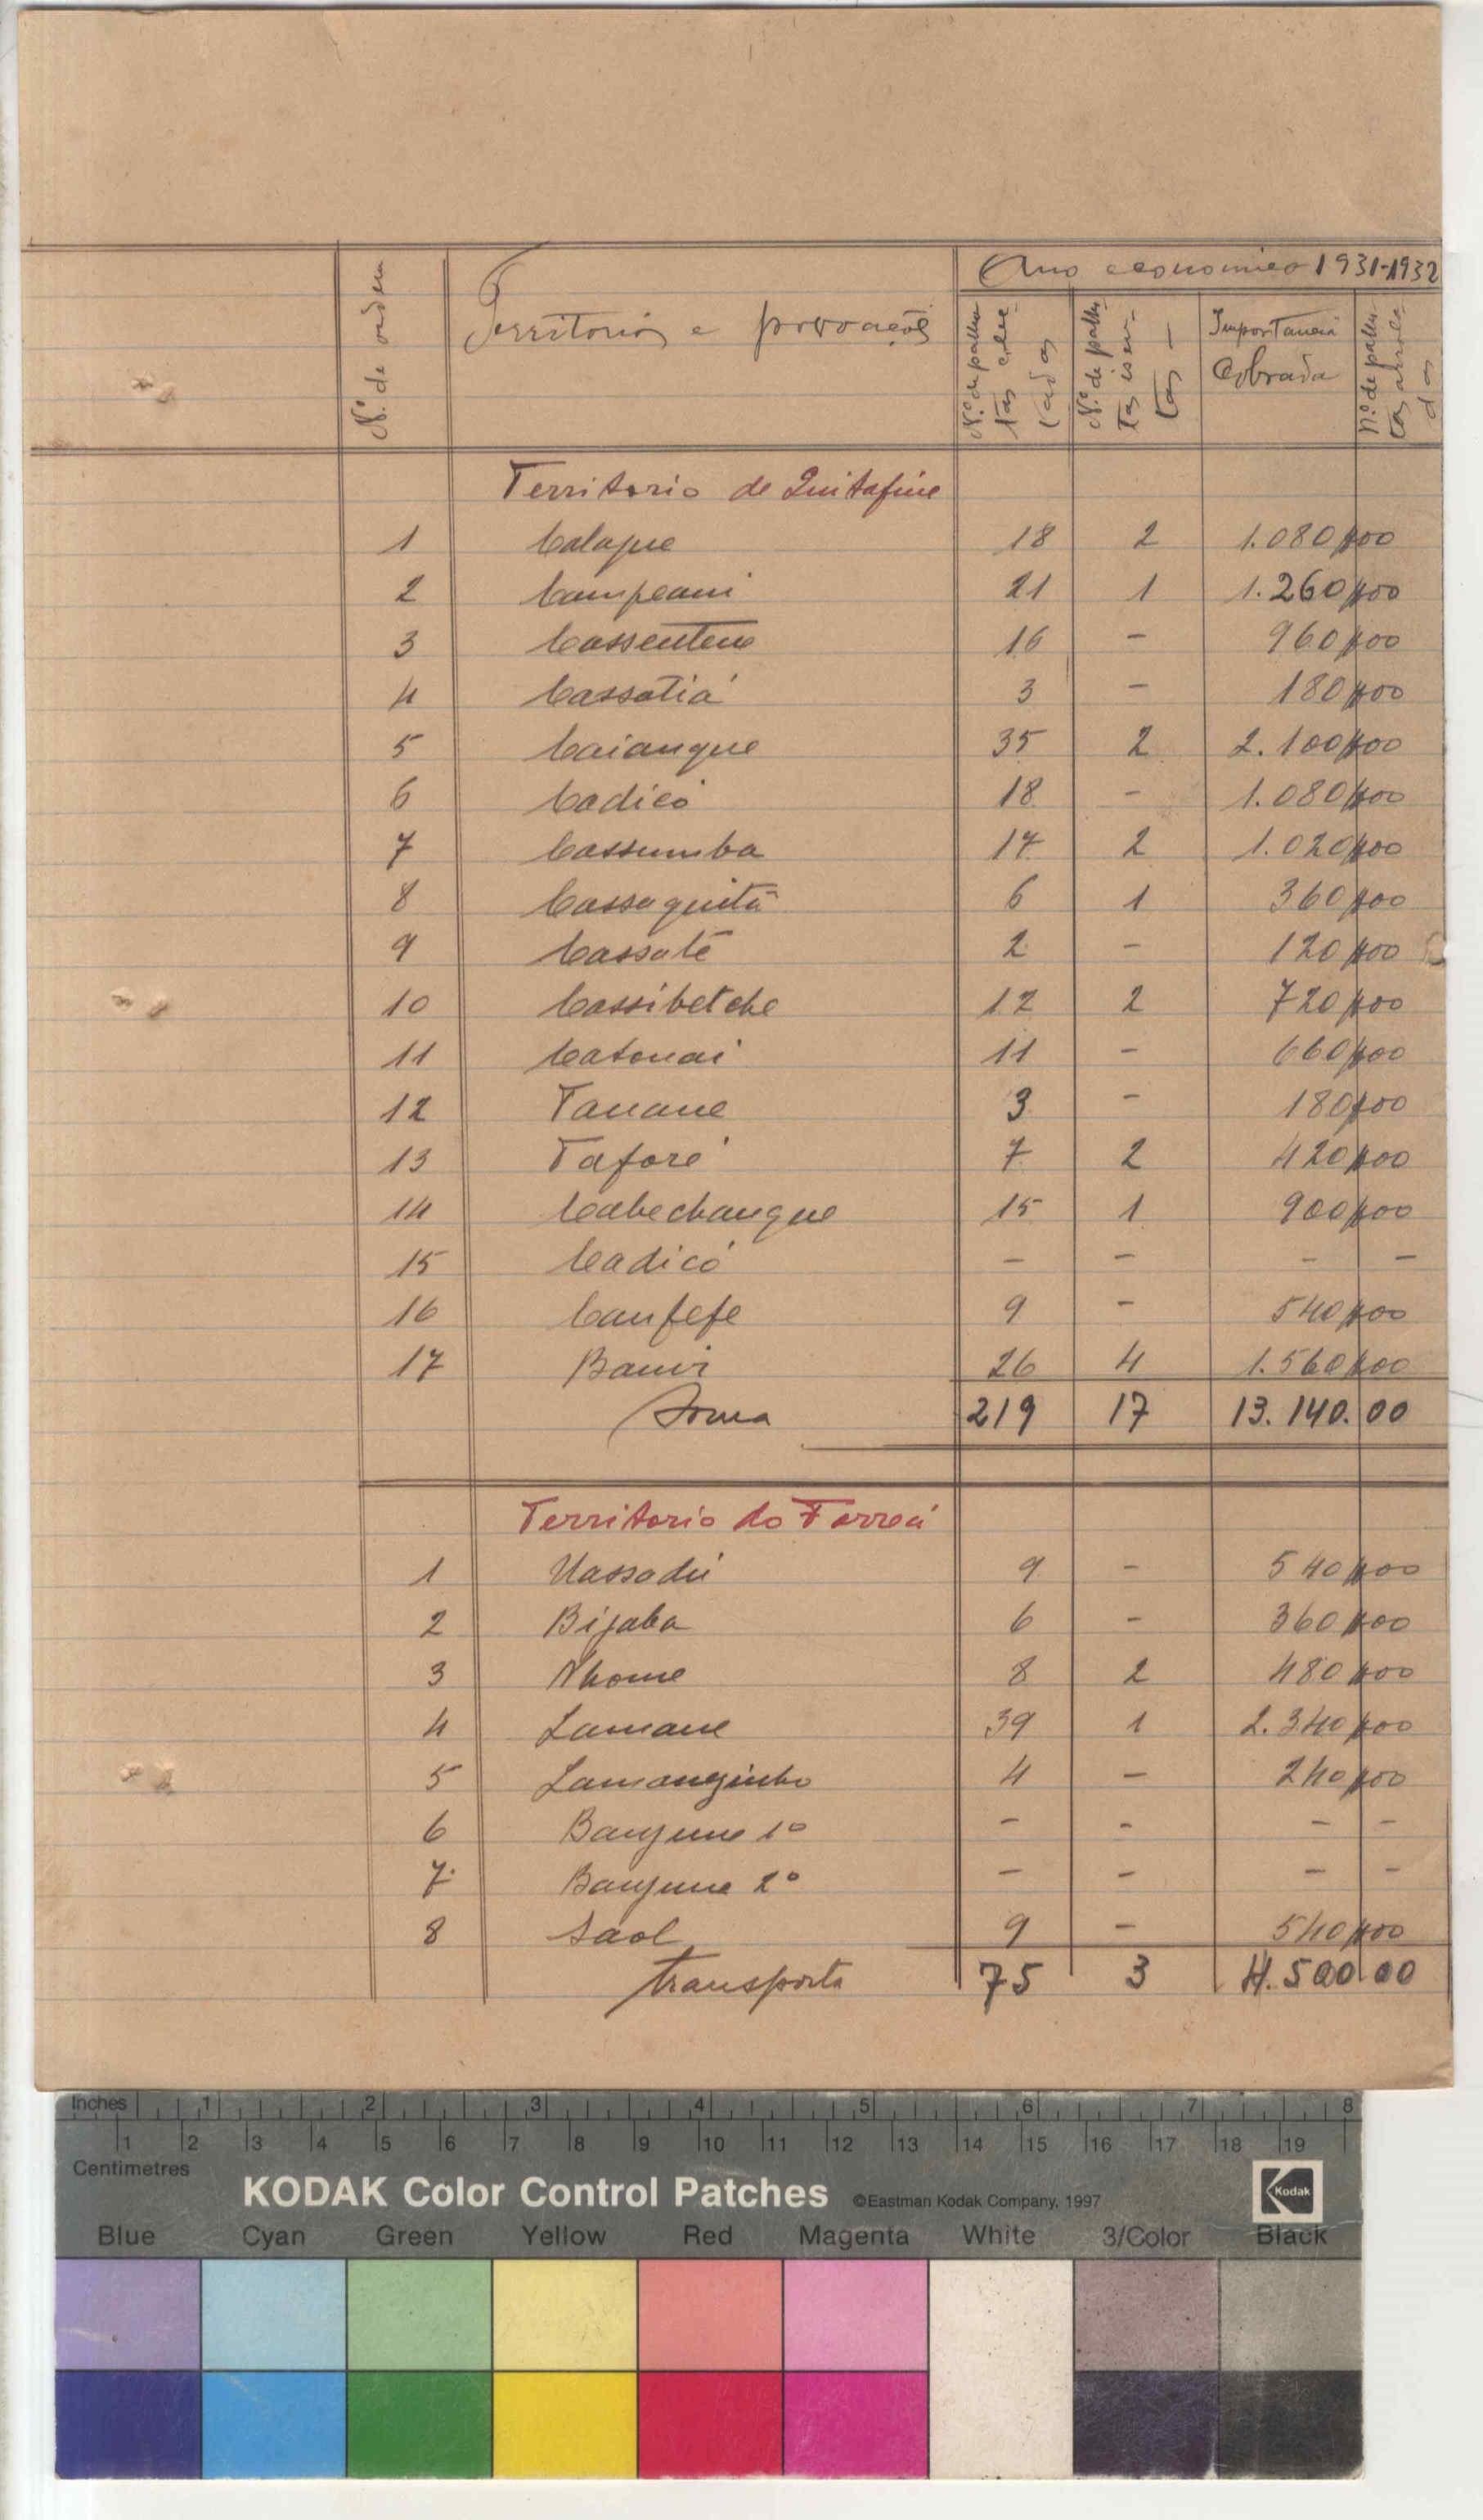 Ano economico 1931-1932
N.º de ordem
Territorios e povoações
N.º de palho tas colec tadas
N.º de palho tas isen- tas -
Importancia Cobrada
n.º de palho tas arrola das
Territorio de Quitafine
1 Calaque 18 2 1.080$00
2 Campeani 21 1 1.260$00
3 Cassentem 16 - 960$00
4 Cassatiá 3 - 180$00
5 Caianque 35 2 2.100$00
6 Cadicó 18 - 1.080$00
7 Cassumba 17 2 1.020$00
8 Cassaquitá 6 1 360$00
9 Cassaté 2 - 120$00
10 Cassibetche 12 2 720$00
11 Catonai 11 - 660$00
12 Tanane 3 - 180$00
13 Taforé 7 2 420$00
14 Cabechanque 15 1 900$00
15 Cadicó - - - -
16 Canfefe 9 - 540$00
17 Banir 26 4 1.560$00
Soma 219 17 13.140.00
Territorio do Forreá
1 Uassadú 9 - 540$00
2 Bijaba 6 - 360$00
3 Nhome 8 2 480$00
4 Lamane 39 1 2.340$00
5 Lamanzinho 4 - 240$00
6 Banjune 1º - - - -
7. Banjune 2º - - - -
8 Saol 9 - 540$00
Transporta 75 3 4.500 00
Inches 1 2 3 4 5 6 7 8
1 2 3 4 5 6 7 8 9 10 11 12 13 14 15 16 17 18 19
Centimetres
KODAK Color Control Patches ©Eastman Kodak Company, 1997 Kodak
Blue Cyan Green Yellow Red Magenta White 3/Color Black